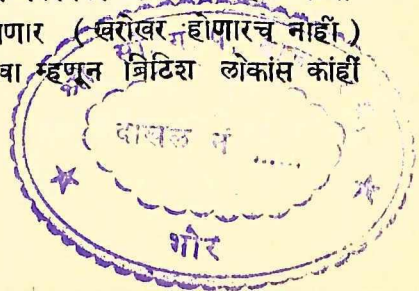 णार ( खरोखर होणारच नाहीं )
वा म्हणून ब्रिटिश लोकांस कांहीं
दाखल नं ......
भोर